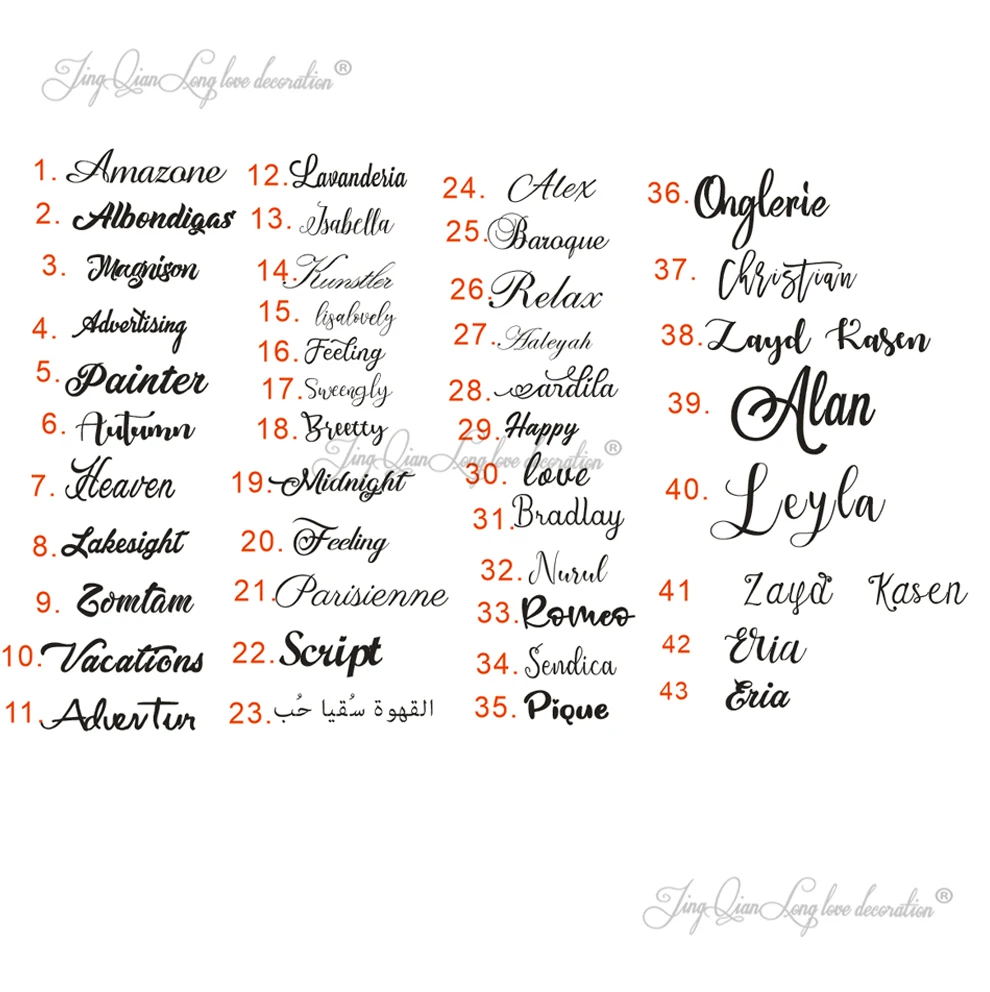 JingQianLong love decoration®
1. Amazone
2. Albondigas
3. Magnison
4. Advertising
5. Painter
6. Autumn
7. Heaven
8. Lakesight
9. Zomtam
10. Vacations
11 Adventur
12. Lavanderia
13. Isabella
14. Kunstler
15. lisalovely
16. Feeling
17. Sweengly
18. Breetty
19. Midnight
20. Feeling
21. Parisienne
22. Script
23. القهوة سُقيا حُب
24. Alex
25. Baroque
26. Relax
27. Aaleyah
28. ardila
29. Happy
JingQianLong love decoration®
30. love
31. Bradlay
32. Nurul
33. Romeo
34. Sendica
35. Pique
36. Onglerie
37. Christian
38. Zayd Kasen
39. Alan
40. Leyla
41 Zayd Kasen
42 Eria
43 Eria
JingQianLong love decoration®